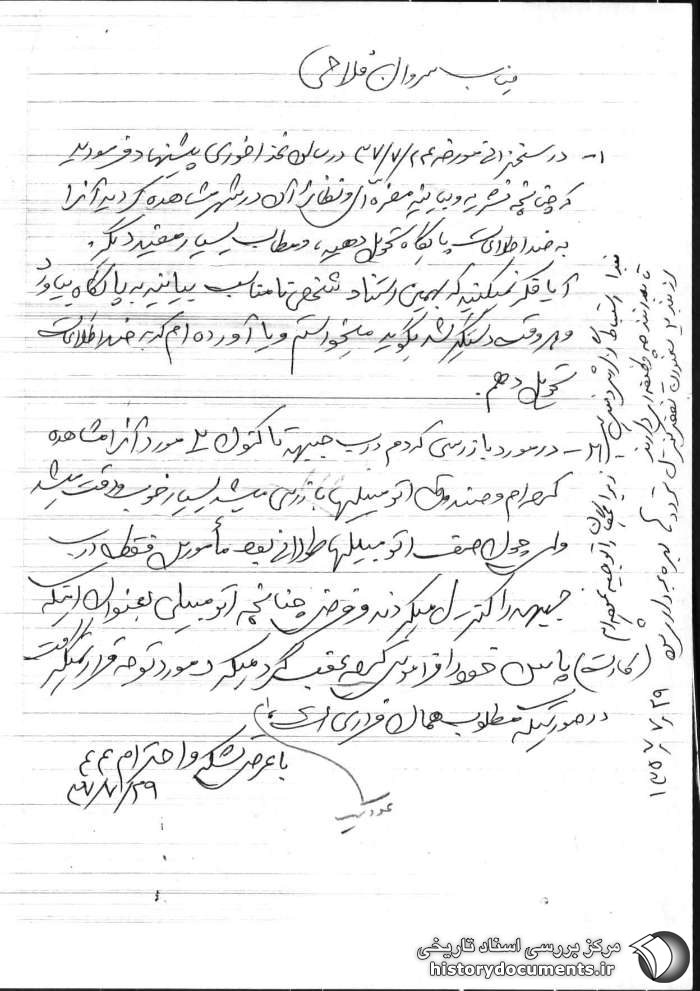 جناب سروان فلاحی
۱- در سخنرانی مورخه ۳۷/۷/۲۴ در سالن غذاخوری پیشنهاد فرمودید
که چنانچه نشریه و بیانیه مضره ای و نظایر آن در شهر مشاهده کردید آنرا
به ضد اطلاعات پایگاه تحویل دهید، و مطالب بسیار مفید دیگر.
آیا فکر نمیکنید که بهمین استناد شخصی نامناسب بیانیه به پایگاه بیاورد
و هر وقت دستگیر شد بگوید میخواستم و یا آورده ام که به ضد اطلاعات
تحویل دهم.
۲- در مورد بازرسی که دم درب جبهه تا کنون ۲ مورد آنرا مشاهده
کرده ام و صندوق اتومبیلها بازرسی میشد بسیار خوب و دقت میشد
ولی چون صف اتومبیلها طولانی بود مأمورین فقط درب
جبهه را کنترل میکردند و فرضی چنانچه اتومبیلی بعنوان اینکه
(کارت) پاس خود را فراموش کرده عقب گرد میکرد مورد توجه قرار نمیگرفت
در صورتیکه مطلوب همان فراری است
با عرض تشکر و احترام ۴۴
۳۷/۷/۲۹
عودت
زیرا
را توجیه نموده ام
۱۳۵۷٫۷٫۲۹
مرکز بررسی اسناد تاریخی
historydocuments.ir